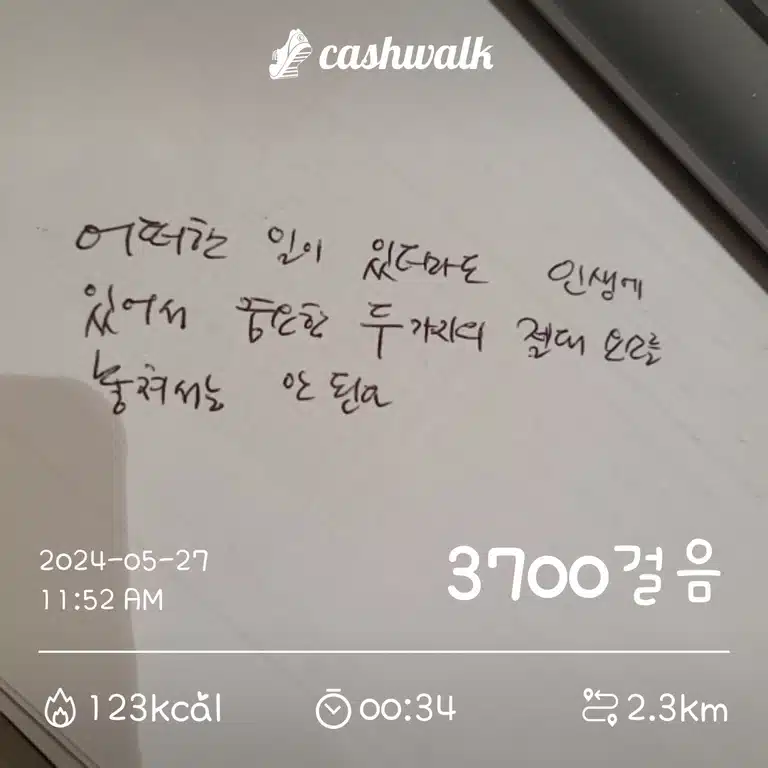 cashwalk
어떠한 일이 있더라도 인생에
있어서 중요한 두 가지의 절대
놓쳐서는 안 된다
2024-05-27
11:52 AM
3700걸음
123kcal
00:34
2.3km